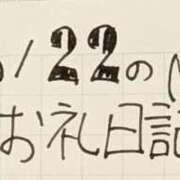 /22の
お礼日記